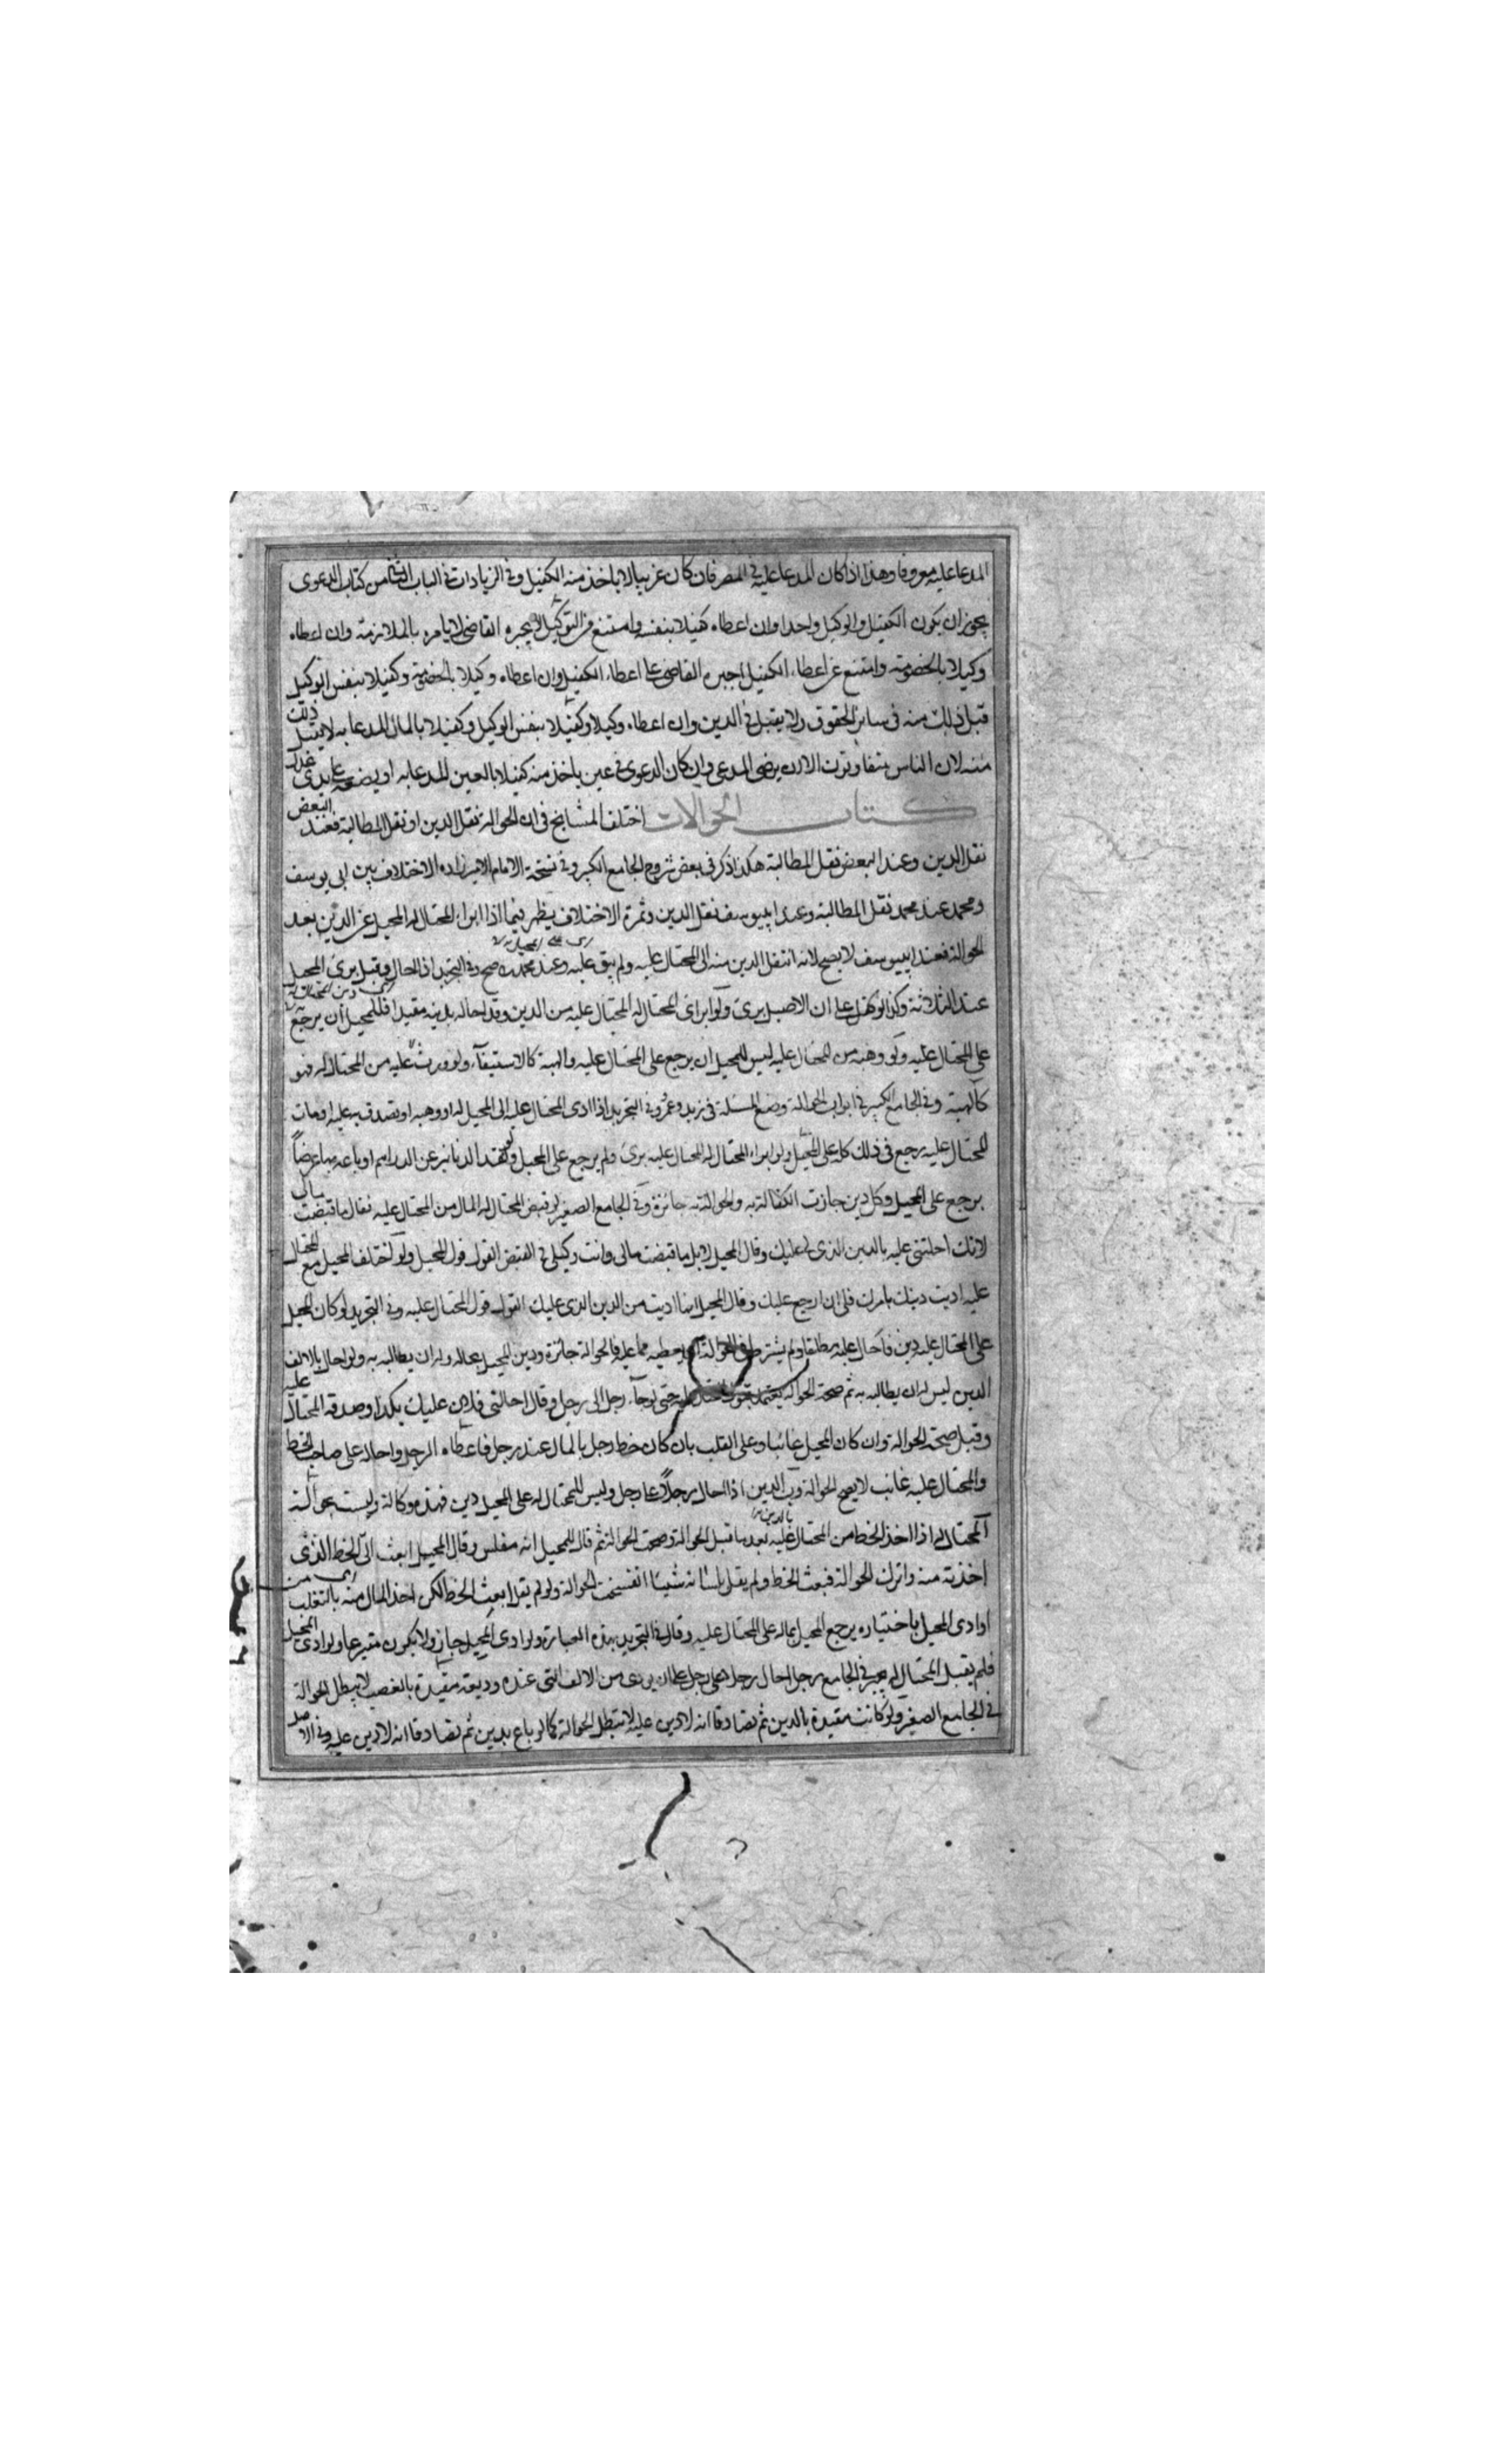 المدعا عليه معروفا وهذا اذا كان المدعا عليه في المصر فان كان غريبا لا ياخذ منه الكفيل وفي الزيادات في الباب الثامن من كتاب الدعوى
يجوز ان يكون الكفيل والوكيل واحدا وان اعطاه كفيلا بنفسه وامتنع من التوكيل لا يجبره القاضي لا يامره بالملازمة وان اعطاه
وكيلا بالخصومة وامتنع عن اعطاء الكفيل اجبره القاضي على اعطاء الكفيل وان اعطاه وكيلا بالخصومة وكفيلا بنفس الوكيل
قبل ذلك منه في سائر الحقوق ولا يقبل في الدين وان اعطاه وكيلا وكفيلا بنفس الوكيل وكفيلا بالمال المدعا به لا يقبل ذلك
منه لان الناس يتفاوتون الا ان يرضى المدعي وان كان الدعوى في عين ياخذ منه كفيلا بالعين المدعا به او يضعه على يدي عدل
كتاب الحوالات اختلف المشايخ في ان الحوالة نقل الدين او نقل المطالبة فعند البعض
نقل الدين وعند البعض نقل المطالبة هكذا ذكر في بعض شروح الجامع الكبير وفي نسخة الامام الاختلاف بين ابي يوسف
ومحمد عند محمد نقل المطالبة وعند ابييوسف نقل الدين وثمرة الاختلاف يظهر فيما اذا ابراء المحتال له المحيل عن الدين بعد
الحوالة فعند ابييوسف لا يصح لانه انتقل الدين منه الى المحتال عليه ولم يبق عليه وعند محمد صح وفي التجريد اذا احال وقبل برئ المحيل
عند الثلاثة وكذا لو كفل على ان الاصيل برئ ولو ابراى المحتال له المحتال عليه من الدين وقد احاله بدينه مقيدا فللمحيل ان يرجع
على المحتال عليه ولو وهبه من المحتال عليه ليس للمحيل ان يرجع على المحتال عليه والهبة كالاستيفاء ولو ورث عليه من المحتال له فهو
كالهبة وفي الجامع الكبير في ابواب الحوالة وضع المسئلة في زيد وعمرو وفي التجريد اذا ادى المحتال عليه الى المحيل له او وهبه او تصدق به عليه او مات
المحتال عليه يرجع في ذلك كله على المحيل ولو ابراء المحتال له المحتال عليه برئ ولم يرجع على المحيل ولو نقد الدنانير عن الدراهم او باعه بها عرضاً
يرجع على المحيل وكل دين جازت الكفالة به والحوالة به جائزة وفي الجامع الصغير لو قبض المحتال له المال من المحتال عليه فقال ما قبضت مالي
لانك احلتني عليه بالدين الذي لي عليك وقال المحيل لا بل ما قبضت مالي وانت وكيلي في القبض القول قول المحيل ولو اختلف المحيل مع المحتال
عليه اديت دينك بامرك فلي ان ارجع عليك وقال المحيل انما اديت من الدين الذي عليك القول قول المحتال عليه وفي التجريد لو كان للمحيل
على المحتال عليه دين فاحال عليه مطلقا ولم يشترط في الحوالة ان يعطيه مما عليه فالحوالة جائزة ودين المحيل بحاله وله ان يطالبه به ولو احال بالالف
الدين ليس له ان يطالبه به ثم صحة الحوالة يعتمد قبول المحتال عليه حتى لو جاء رجل الى رجل وقال احالني فلان عليك بكذا وصدقه المحتال عليه
وقبل صحة الحوالة وان كان المحيل غائبا وعلى القلب بان كان خط رجل بالمال عند رجل فاعطاه الرجل واحاله على صاحب الخط
والمحتال عليه غائب لا يصح الحوالة وب الدين اذا احال رجلاً على رجل وليس للمحتال له على المحيل دين فهذه وكالة وليست بحوالة
المحتال له اذا اخذ الخط من المحتال عليه بعد ما قبل الحوالة وصحت الحوالة ثم قال للمحيل انه مفلس وقال المحيل ابعث الي الخط الذي
اخذته منه واترك الحوالة فبعث الخط ولم يقل بلسانه شيئا انفسخت الحوالة ولو لم يقل ابعث الخط لكن اخذ المال منه بالتغلب
او ادى المحيل باختياره يرجع المحيل بماله على المحتال عليه وقال في التجريد بهذه العبارة ولو ادى المحيل جاز ولا يكون متبرعا ولو ادى المحيل
فلم يقبل المحتال له يجبر في الجامع رجل احال رجلا على رجل على ان يؤدى من الالف التي عنده وديعة مقيدة بالغصب لا يبطل الحوالة
في الجامع الصغير ولو كانت مقيدة بالدين ثم تصادقا انه لا دين عليه لا تبطل الحوالة كما لو باع بدين ثم تصادقا انه لا دين عليه وفي الاصل